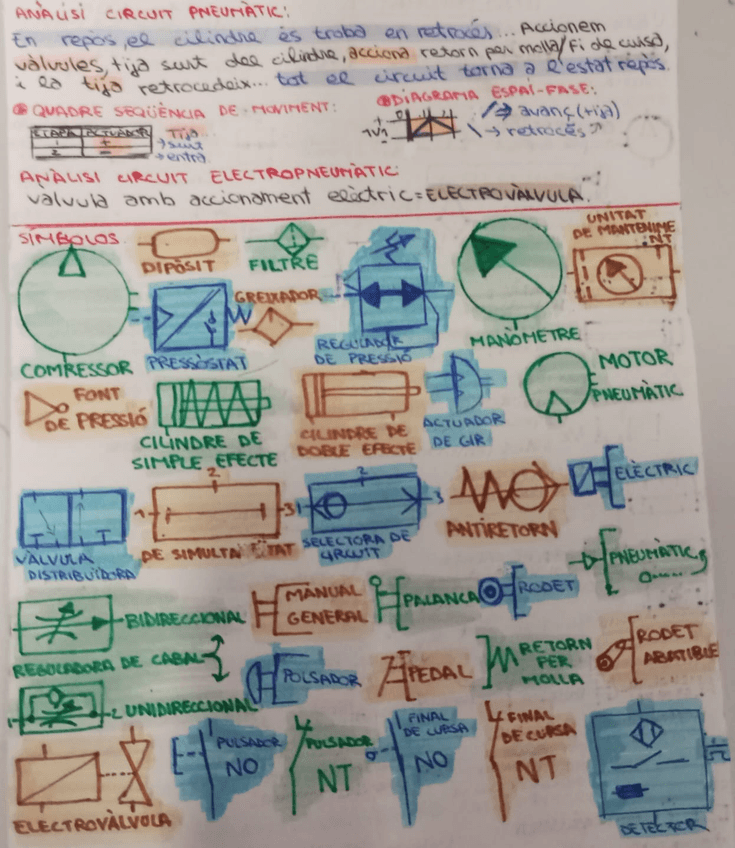 ANÀLISI CIRCUIT PNEUMÀTIC:
En repòs, el cilindre es troba en retrocés... Accionem
vàlvules, tija surt del cilindre, acciona retorn per molla/fi de cursa,
i la tija retrocedeix... tot el circuit torna a l'estat repòs.
QUADRE SEQÜÈNCIA DE MOVIMENT:
DIAGRAMA ESPAI-FASE:
ETAPA ACTUADOR Tija
1 + → surt
2 - → entra
→ avanç (+ija)
→ retrocés
ANÀLISI CIRCUIT ELECTROPNEUMÀTIC:
vàlvula amb accionament elèctric = ELECTROVÀLVULA.
SÍMBOLOS
COMRESSOR
DIPÒSIT
FILTRE
PRESSÒSTAT
GREIXADOR
REGULADOR
DE PRESSIÓ
MANÒMETRE
UNITAT
DE MANTENIME
NT
FONT
DE PRESSIÓ
CILINDRE DE
SIMPLE EFECTE
CILINDRE DE
DOBLE EFECTE
ACTUADOR
DE GIR
MOTOR
PNEUMÀTIC
VÀLVULA
DISTRIBUÏDORA
1 2 3
DE SIMULTA TAT
1 2 3
SELECTORA DE
CIRCUIT
ANTIRETORN
ELÈCTRIC
PNEUMÀTIC
BIDIRECCIONAL
REGULADORA DE CABAL
1 2 UNIDIRECCIONAL
MANUAL
GENERAL
PALANCA
RODET
POLSADOR
PEDAL
RETORN
PER
MOLLA
RODET
ABATIBLE
ELECTROVÀLVULA
PULSADOR
NO
PULSADOR
NT
FINAL
DE CURSA
NO
FINAL
DE CURSA
NT
DETECTOR